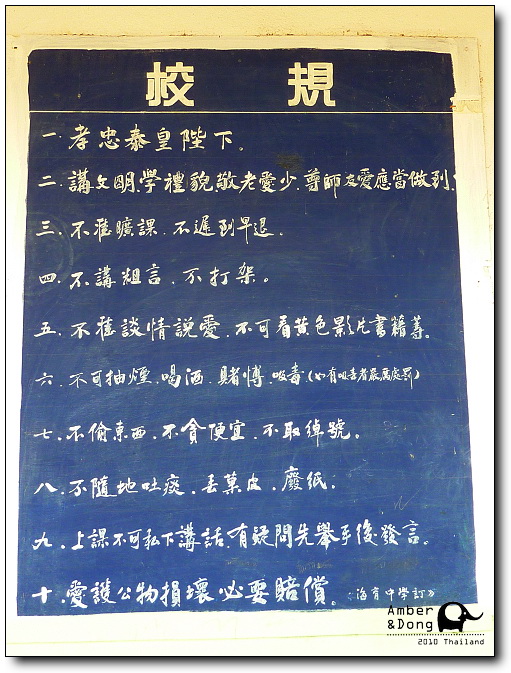 校規
一．孝忠泰皇陛下。
二．講文明．學禮貌．敬老愛少．尊師友愛應當做到．
三．不准曠課．不遲到早退．
四．不講粗言．不打架。
五．不准談情說愛．不可看黄色影片書籍等。
六．不可抽煙．喝酒．賭博．吸毒（如有吸毒者嚴厲處罰）
七．不偷東西．不貪便宜．不取綽號。
八．不隨地吐痰．丢菓皮．廢紙．
九．上課不可私下講話．有疑問先舉手後發言。
十．愛護公物損壞必要賠償。
中學訂
Amber
&Dong
2010 Thailand